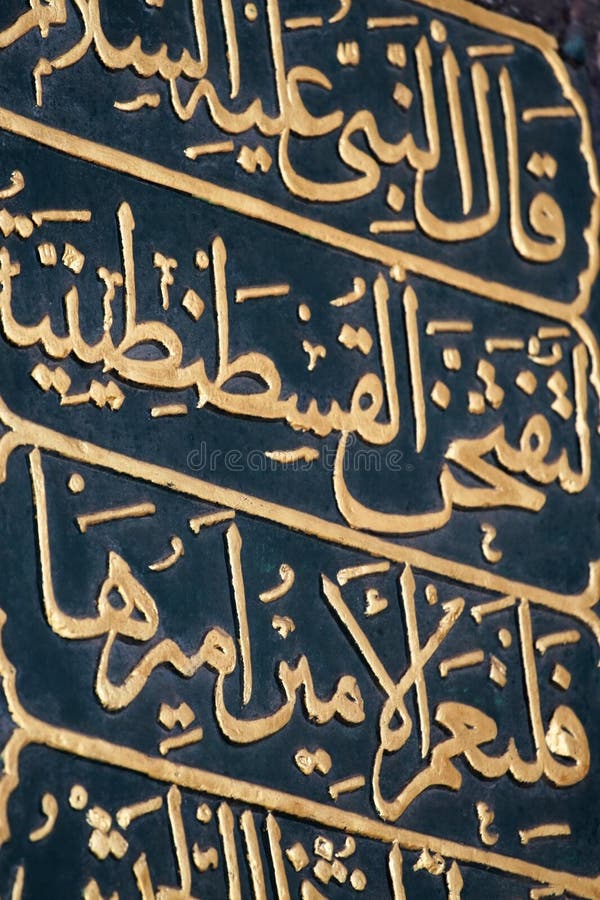 قَالَ النَّبِىُّ عَلَيْهِ السَّلَام
لَتُفْتَحَنَّ الْقُسْطَنْطِينِيَّةُ
فَلَنِعْمَ الْأَمِيرُ اَمِيرُهَا
dreamstime